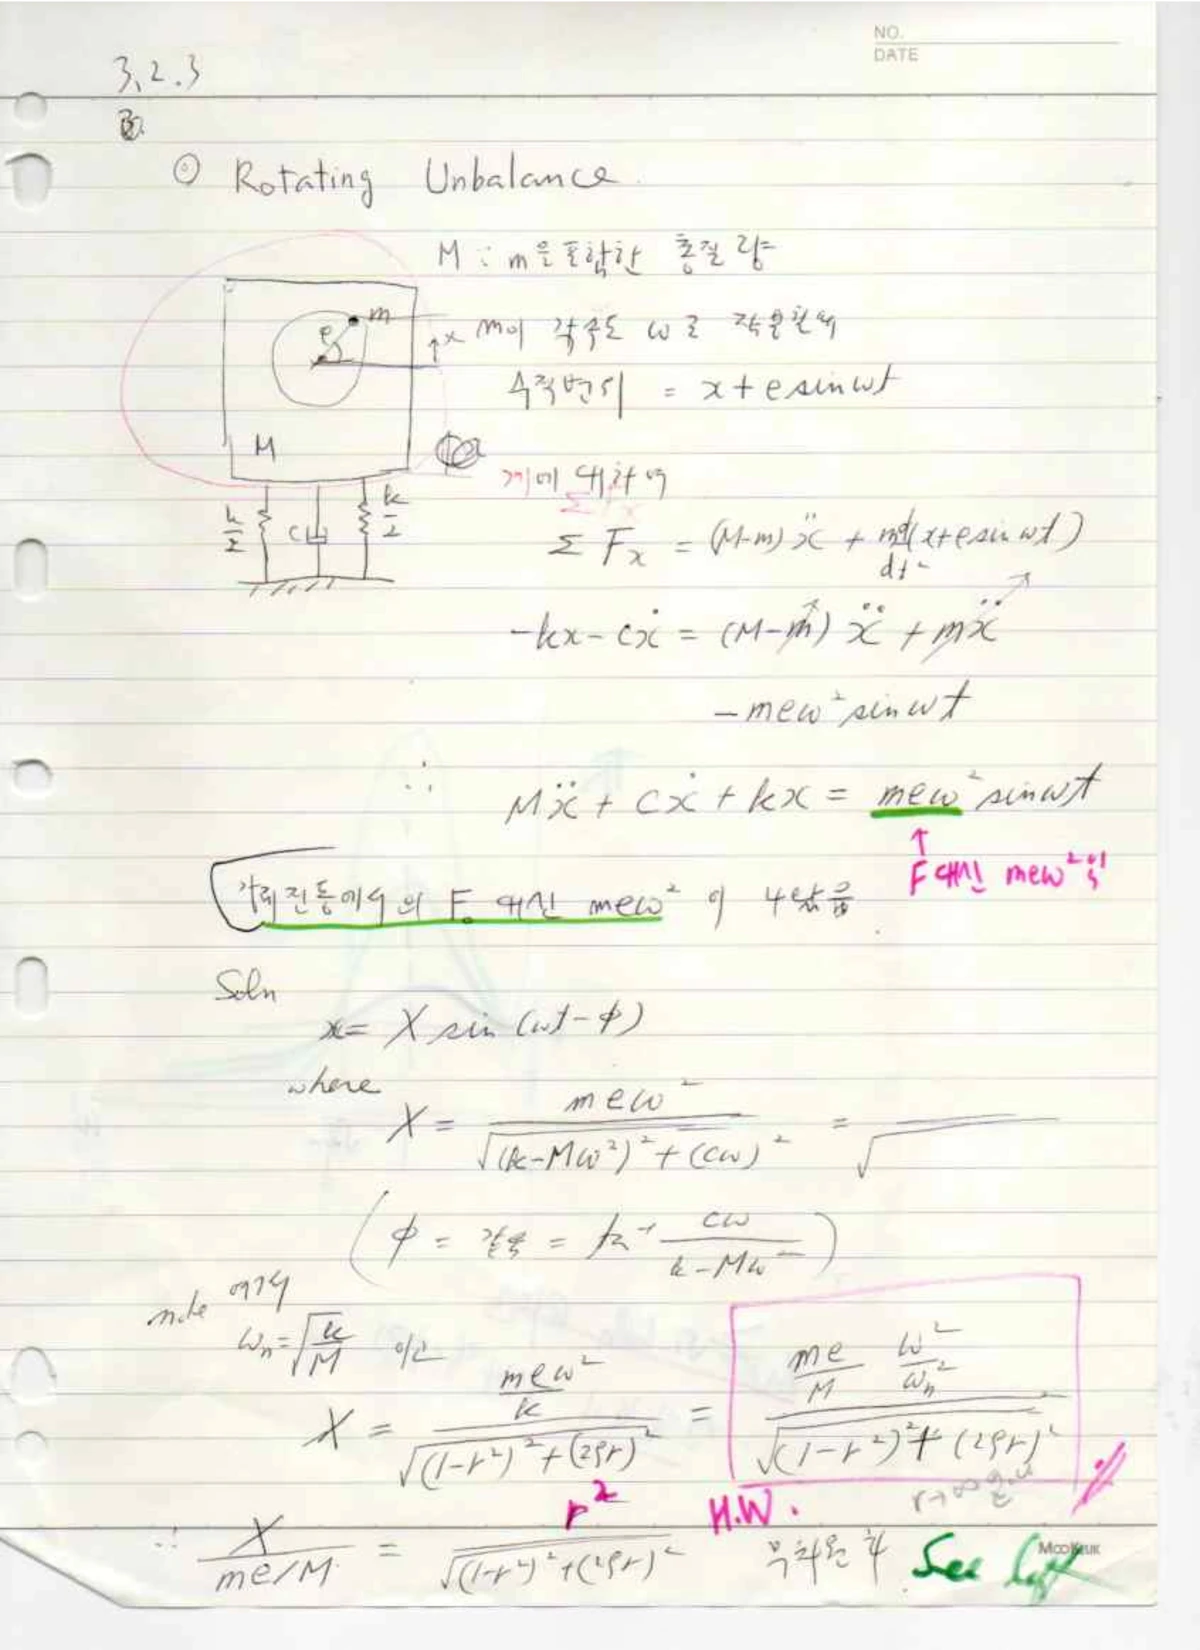 NO.
DATE
3.2.3
⊙ Rotating Unbalance.
M : m을 포함한 총질량
m
e
x
M
k/2
C
k/2
m이 각속도 ω로 작용할때
수직변위 = x + e sin ωt
계에 대하여
Σ F_x = (M-m) ẍ + m d²/dt² (x + e sin ωt)
-kx - cẋ = (M-m) ẍ + mẍ
- meω² sin ωt
∴ Mẍ + cẋ + kx = meω² sin ωt
↑
F 대신 meω²이
강제진동에서의 F₀ 대신 meω² 이
Soln
x = X sin (ωt - φ)
where
X = meω² / √((k-Mω²)² + (cω)²) = / √
( φ = 같음 = tan⁻¹ cω / (k-Mω²) )
note 여기서
ω_n = √(k/M) 이고
X = (meω²/k) / √((1-r²)² + (2ζr)²) = (me/M) (ω²/ω_n²) / √((1-r²)² + (2ζr)²)
H.W.
r→∞
∴ X / (me/M) = r² / √((1-r²)² + (2ζr)²) 무차원화 See left
MOOKEUK